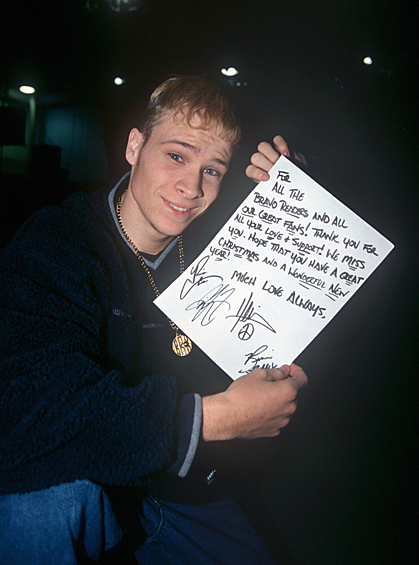 FOR
ALL THE
BRAVO READERS AND ALL
OUR GREAT FANS! THANK YOU FOR
ALL YOUR LOVE & SUPPORT! WE MISS
YOU. HOPE THAT YOU HAVE A GREAT
CHRISTMAS AND A WONDERFUL NEW
YEAR!
MUCH LOVE ALWAYS,